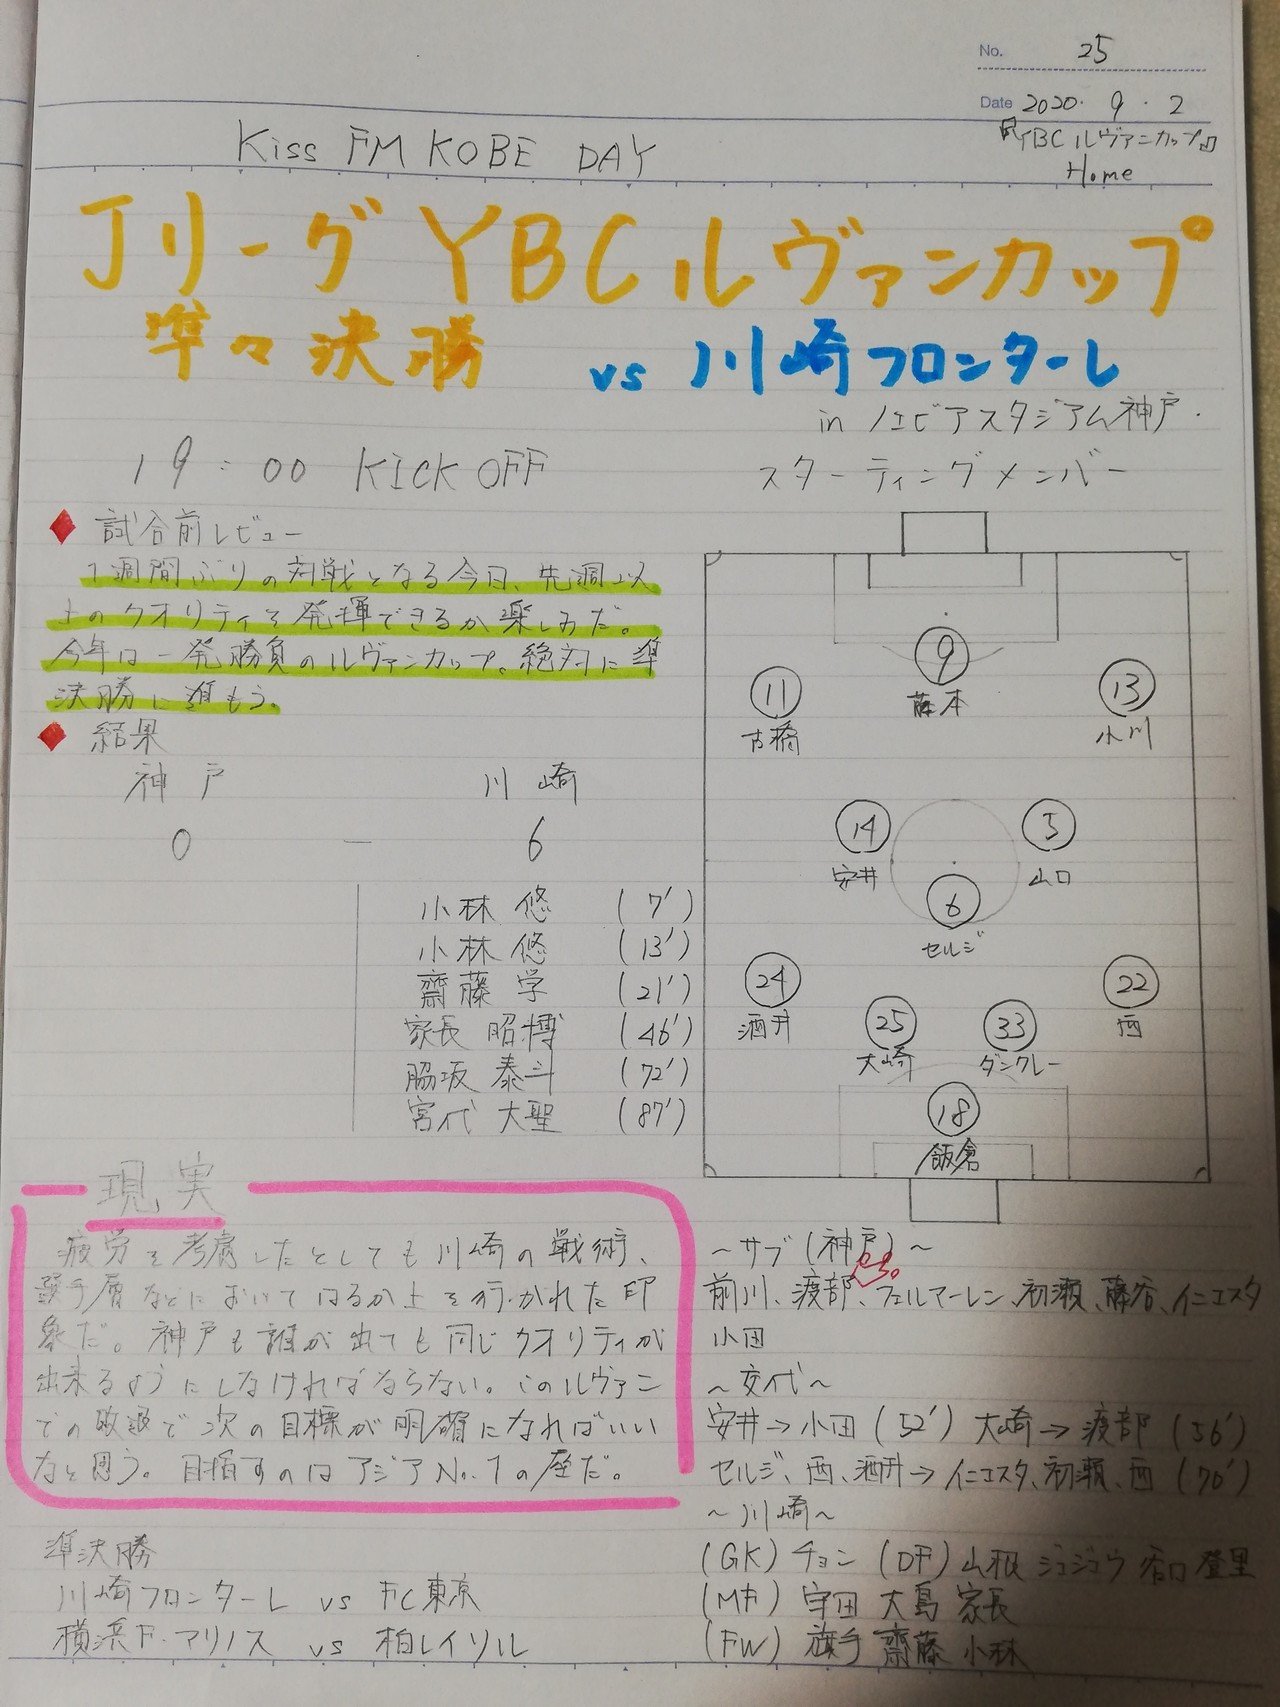 No. 25
Date 2020. 9. 2
『YBCルヴァンカップ』
Home
Kiss FM KOBE DAY
Jリーグ YBCルヴァンカップ
準々決勝 vs 川崎フロンターレ
in ノエビアスタジアム神戸.
19:00 KICK OFF
♦ 試合前レビュー
1週間ぶりの対戦となる今日、先週以
上のクオリティを発揮できるか楽しみだ。
今年は一発勝負のルヴァンカップ。絶対に準
決勝に進もう。
♦ 結果
神戸 川崎
0 - 6
小林 悠 (7')
小林 悠 (13')
齋藤 学 (21')
家長 昭博 (46')
脇坂 泰斗 (72')
宮代 大聖 (87')
スターティングメンバー
9
藤本
11
古橋
13
小川
14
安井
5
山口
6
セルジ
24
酒井
22
西
25
大崎
33
ダンクレー
18
飯倉
現実
疲労を考慮したとしても川崎の戦術、
選手層などにおいてはるか上を行かれた印
象だ。神戸も誰が出ても同じクオリティが
出来るようにしなければならない。このルヴァン
での敗退で次の目標が明確になればいい
なと思う。目指すのはアジアNo.1の座だ。
準決勝
川崎フロンターレ vs FC東京
横浜F・マリノス vs 柏レイソル
~サブ(神戸)~
前川、渡部、フェルマーレン、初瀬、藤谷、イニエスタ
小田
~交代~
安井→小田(52') 大崎→渡部(56')
セルジ、西、酒井→イニエスタ、初瀬、西(70')
~川崎~
(GK) チョン (DF) 山根 ジェジエウ 谷口 登里
(MF) 守田 大島 家長
(FW) 旗手 齋藤 小林